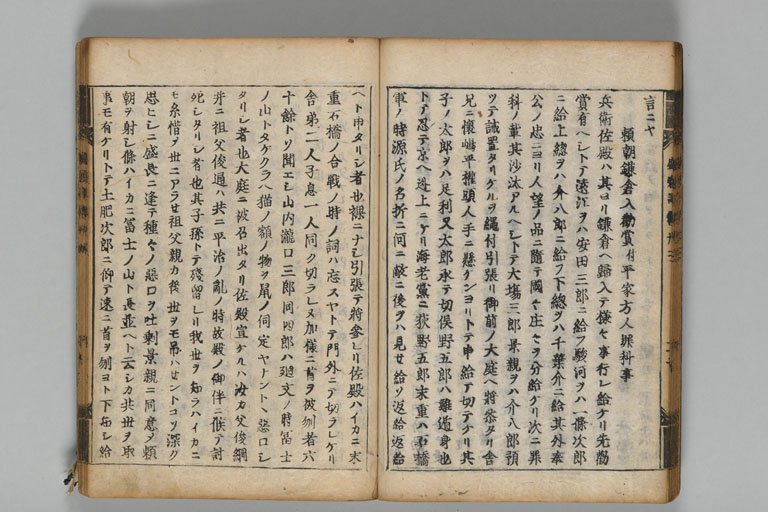 言ニヤ
頼朝鎌倉入勧賞付平家方人罪科事
兵衛佐殿ハ其ヨリ鎌倉ヘ歸入テ様々事行レ給ケリ先勧
賞有ヘシトテ遠江ヲハ安田三郎ニ給フ駿河ヲハ一條次郎
ニ給上総ヲハ介八郎ニ給フ下總ヲハ千葉介ニ給其外奉
公ノ忠ニヨリ人望ノ品ニ随テ國々庄々ヲ分給ケリ次ニ罪
科ノ輩其沙汰アルヘシトテ大場三郎景親ヲハ介八郎預
ツテ誡置タリケルヲ縄付引張リ御前ノ大庭ヘ將参タリ舎
兄ニ懐嶋平權頭人手ニ懸ケンヨリトテ申給テ切テケリ其
子ノ太郎ヲハ足利又太郎承テ切俣野五郎ハ難遁身也
トテ忍テ京ヘ迯上ニケリ海老黨ニ荻野五郎末重ハ石橋
軍ノ時源氏ノ名折ニ何ニ敵ニ後ヲハ見セ給ソ返給返給
ヘト申タリシ者也裸ニナシ引張テ將参レリ佐殿ハイカニ末
重石橋ノ合戰ノ時ノ詞ハ忘スヤトテ門外ニテ切ラレケリ
舎弟二人子息一人同ク切ラレヌ加様ニ首ヲ被刎者六
十餘トソ聞エシ山内瀧口三郎同四郎ハ廻文ノ時冨士
ノ山トタケクラヘ猫ノ額ノ物ヲ鼠ノ伺定ヤナント悪口シ
タリシ者也大庭ニ被召出タリ佐殿宣ケルハ汝カ父俊綱
并ニ祖父俊通ハ共ニ平治ノ亂ノ時故殿ノ御伴ニ候テ討
死シタリシ者也其子孫トテ殘留レリ我世ヲ知ラハイカニ
モ糸惜ヲ世ニアラセ祖父親カ後世ヲモ吊ハセントコソ深ク
思ヒシニ盛長ニ逢テ種々ノ悪口ヲ吐剰景親ニ同意メ頼
朝ヲ射シ條ハイカニ冨士ノ山ト長並ヘト云シカ共世ヲ取
事モ有ケリトテ土肥次郎ニ仰テ速ニ首ヲ刎ヨト下知シ給